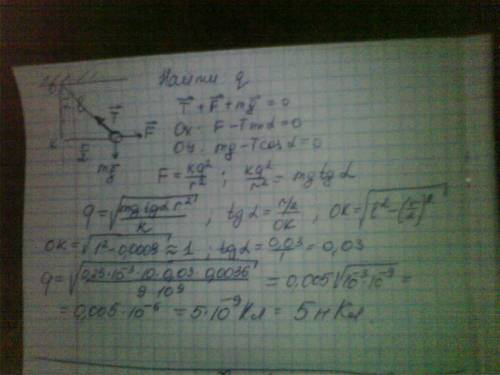 Найти q
T⃗ + F⃗ + mg⃗ = 0
Ox: F - T sin α = 0
Oy: mg - T cos α = 0
F = kq²/r² ; kq²/r² = mg tg α
q = √(mg tg α r²/k) ; tg α = (r/2)/OK ; OK = √(l² - (r/2)²)
OK = √(1² - 0,0009) ≈ 1 ; tg α = 0,03/1 = 0,03
q = √(0,25·10⁻³·10·0,03·0,0036/9·10⁹) = 0,005√(10⁻³·10⁻⁹) =
= 0,005·10⁻⁶ = 5·10⁻⁹ Кл = 5 нКл
T⃗
F⃗
K
r/2
mg⃗